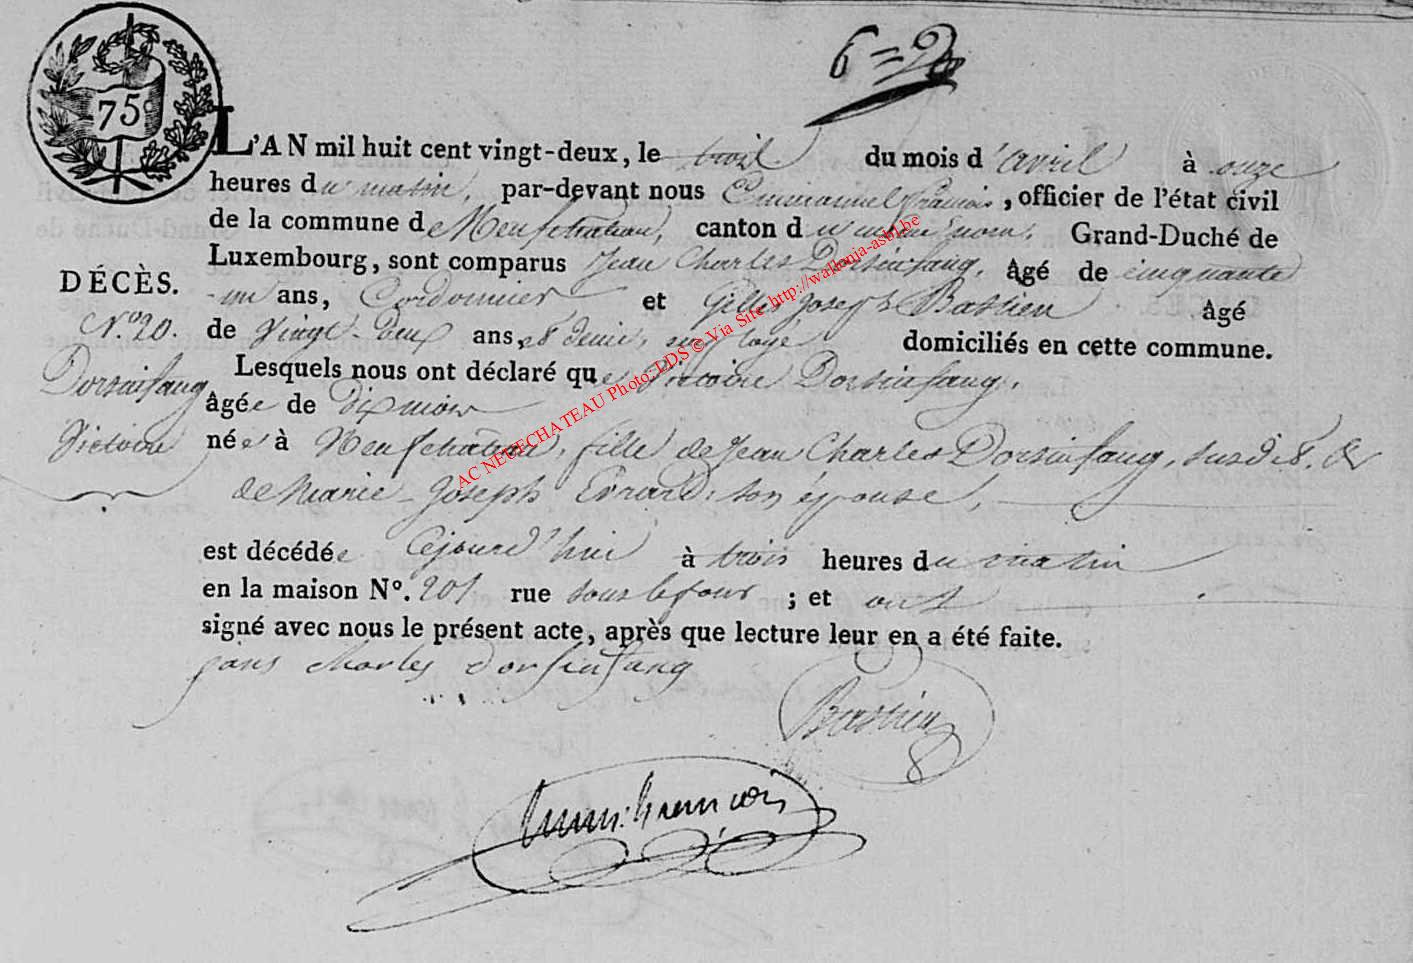 6=20
75c
L'AN mil huit cent vingt-deux, le trois du mois d'avril à onze
heures du matin, par-devant nous Emmanuel François, officier de l'état civil
de la commune de Neufchateau, canton du même nom, Grand-Duché de
Luxembourg, sont comparus Jean Charles Dorsinfang, âgé de cinquante
DÉCÈS.
-un ans, Cordonnier et Gilles Joseph Bastien âgé
N.° 20.
de vingt-deux ans, & demi, domiciliés en cette commune.
Dorsinfang
Victoire
Lesquels nous ont déclaré que Victoire Dorsinfang,
âgée de dix mois
née à Neufchateau, fille de Jean Charles Dorsinfang, susdit, &
de Marie-Joseph Evrard, son épouse,
est décédée cejourd'hui à trois heures du matin
en la maison N°. 201 rue sous le four ; et ont
signé avec nous le présent acte, après que lecture leur en a été faite.
jans charles dorsinfang
Bastien
Emm: françois
AC NEUFCHATEAU Photo LDS © Via Site http://wallonia-asbl.be